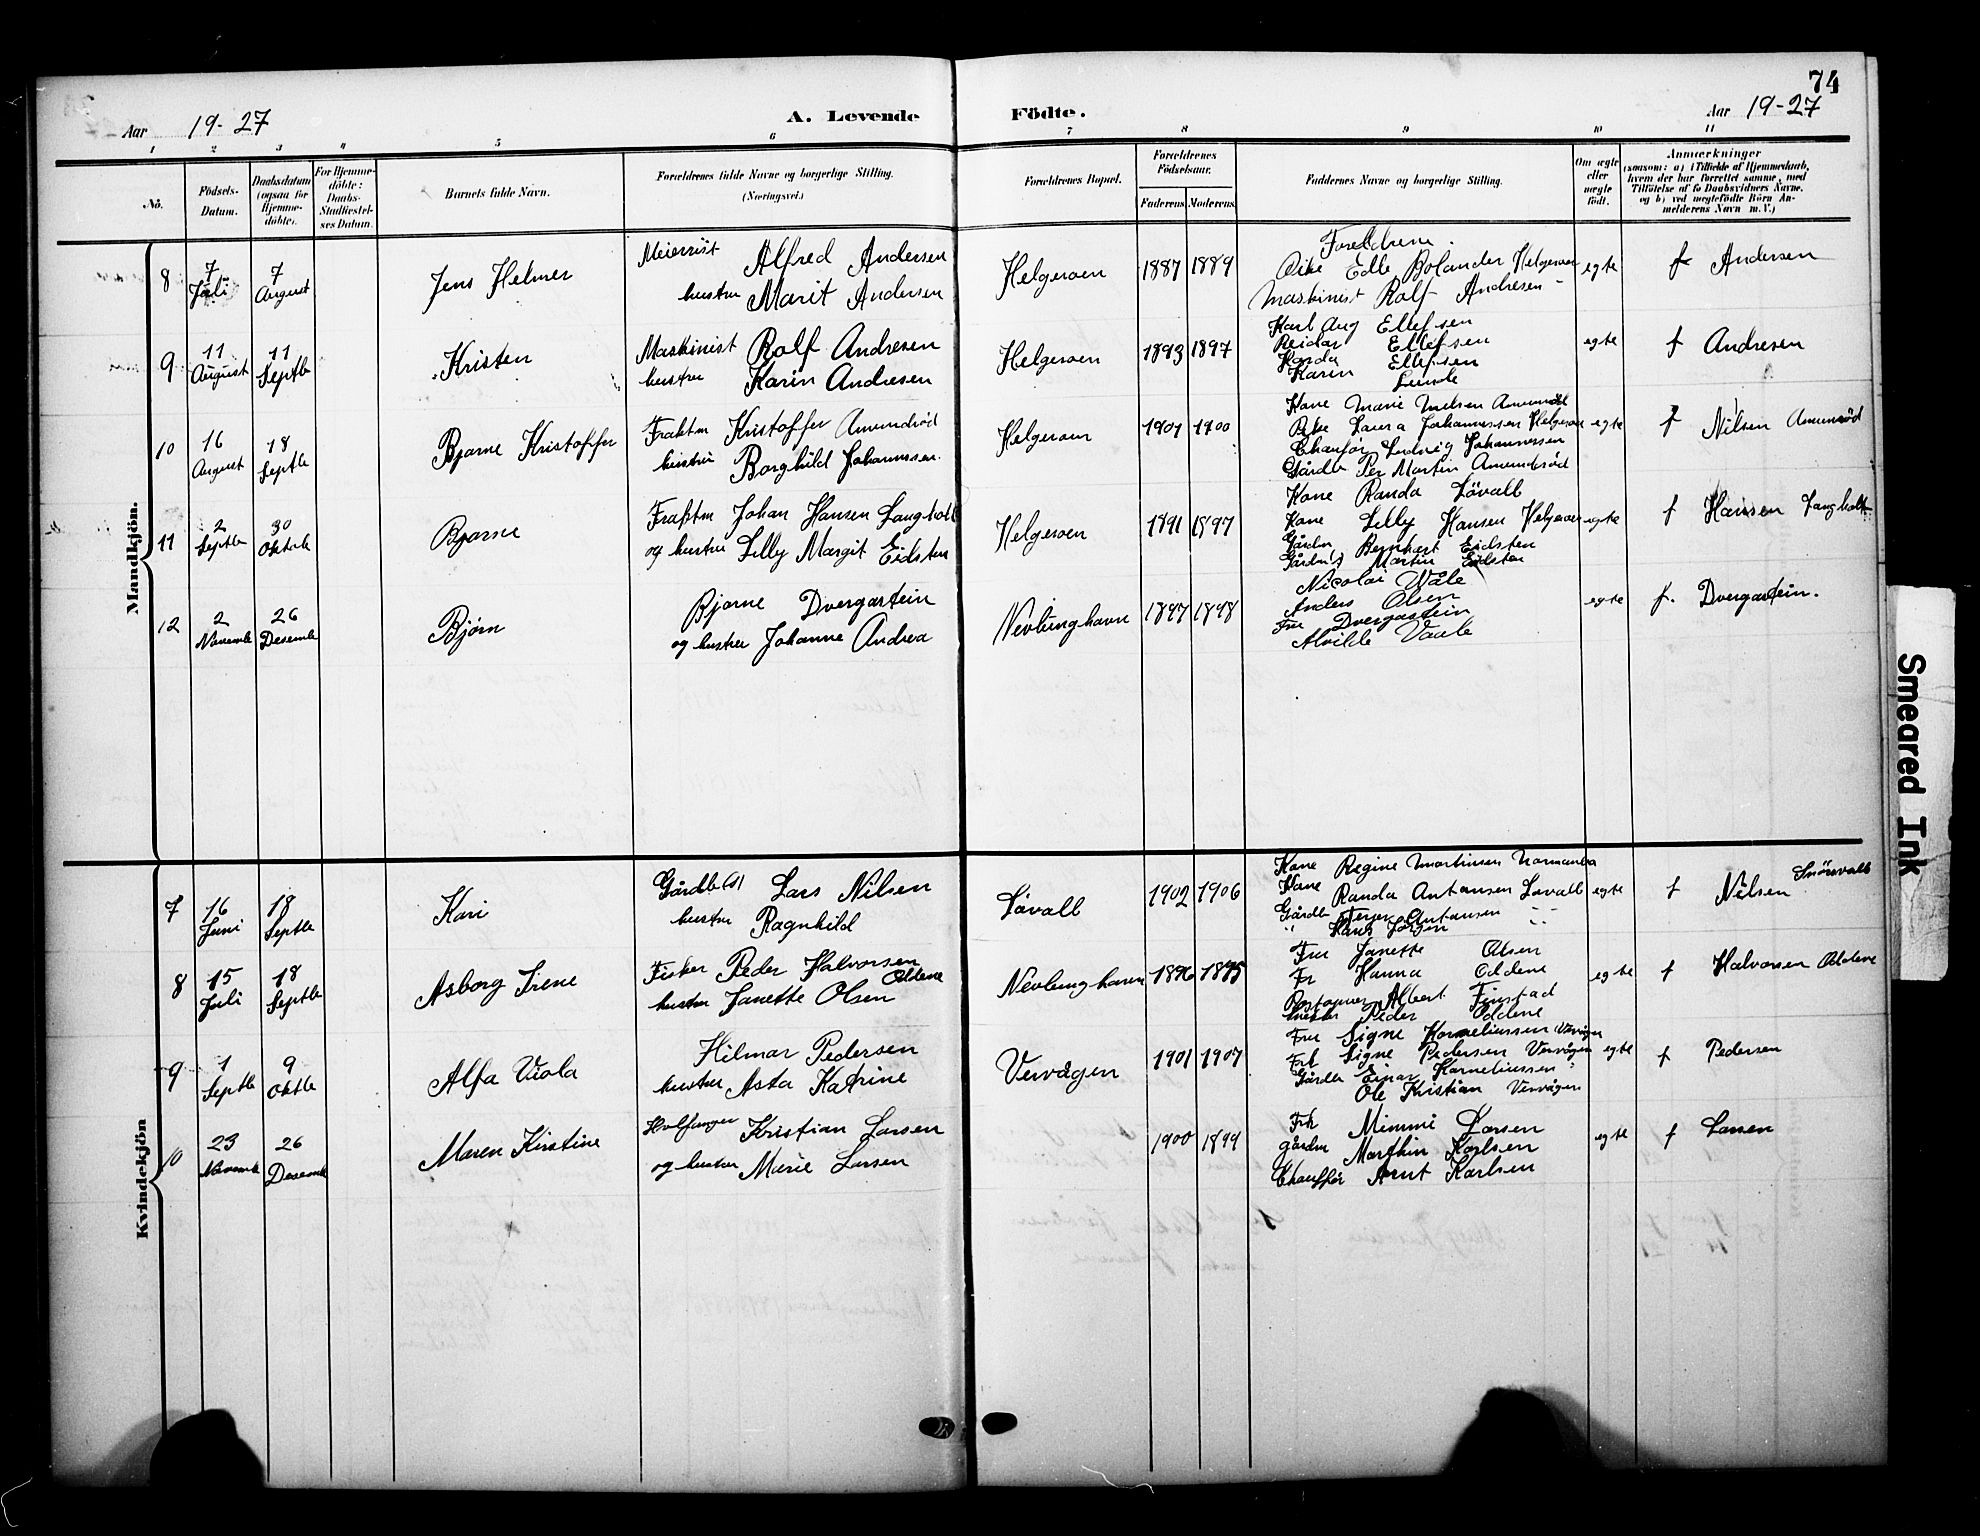 74
Aar 19-27
A. Levende Födte.
Aar 19-27
1 2 3 4 5 6 7 8 9 10 11
No.
Födsels-Datum.
Daabsdatum (ogsaa for Hjemmedöbte).
For Hjemmedöbte: Daabs-Stadfæstelses Datum.
Barnets fulde Navn.
Forældrenes fulde Navne og borgerlige Stilling. (Næringsvei.)
Forældrenes Bopæl.
Forældrenes Födselsaar.
Faderens. Moderens.
Faddernes Navne og borgerlige Stilling.
Om ægte eller uægte födt.
Anmærkninger
(saasom: a) i Tilfælde af Hjemmedaab, hvem der har forrettet samme, med Tilföielse af to Daabsvidners Navne, og b) ved uægtefödte Börn Anmelderens Navn m. V.)
Mandkjön.
8
7 Juli
7 August
Jens Helmer
Meierist Alfred Andersen
hustru Marit Andersen
Helgeroen
1887 1889
Foreldrene.
Edle Bolander Helgeroen
Maskinist Rolf Andresen
egte
f Andersen
9
11 August
11 Septbr
Kristen
Maskinist Rolf Andresen
hustru Karin Andresen
Helgeroen
1893 1897
Karl Aug Ellefsen
Reidar Ellefsen
Ellefsen
Karin Lunde
egte
f Andresen
10
16 August
18 Septbr
Bjarne Kristoffer
Fraktm Kristoffer Amundröd
hustru Borghild Johannessen.
Helgeroen
1901 1900
Kone Marie Nielsen Amundröd
Pike Laura Johannessen Helgeroen
Chauför Ludvig Johannessen
Gårdb Per Martin Amundsröd
egte
f Nilsen Amunröd
11
2 Septbr
30 Oktob
Bjarne
Fraktm Johan Hansen Langholt
og hustru Lilly Margit Eidsten
Helgeroen
1891 1897
Kone Randa Lövall
Kone Lilly Hansen Helgeroen
Gårdm Bernhart Eidsten
Martin Eidsten
egte
f Hansen Langholt
12
2 Novemb
26 Desemb
Bjørn
Bjarne Dvergastein
og hustru Johanne Andrea
Nevlunghavn
1897 1898
Nicolai Wåle
Anders Olsen
Fru Dvergastein
Alvilde Vaale
egte
f. Dvergastein.
Kvindekjön
7
16 Juni
18 Septb
Kari
Gårdb Lars Nilsen
hustru Ragnhild
Lövall
1902 1906
Kone Regine Martinsen
Kone Randa Antonsen Lövall
Gårdb Terjer Antonsen
" Hans Jörgen
egte
f Nilsen
8
15 Juli
18 Septb
Asborg Irene
Fisker Peder Halvorsen Oddene
hustru Janette Olsen
Nevlunghavn
1896 1895
Fru Janette Olsen
Fr Hanna Oddene
Albert Finstad
Peder Oddene
egte
f Halvorsen Oddene
9
1 Septb
9 Oktb
Alfa Viola
Hilmar Pedersen
hustru Asta Katrine
Vervågen
1901 1907
Fru Signe Korneliussen Vervågen
Frk Signe Pedersen Vervågen
Gårdb Einar Korneliussen "
Ole Kristian Vervågen
egte
f Pedersen
10
23 Novemb
26 Desemb
Maren Kirstine
Hvalfanger Kristian Larsen
og hustru Marie Larsen
1900 1899
Frk Mimmi Larsen
Gårdm Marthin Karlsen
Chauffør Arnt Karlsen
egte
f Larsen
Smeared Ink